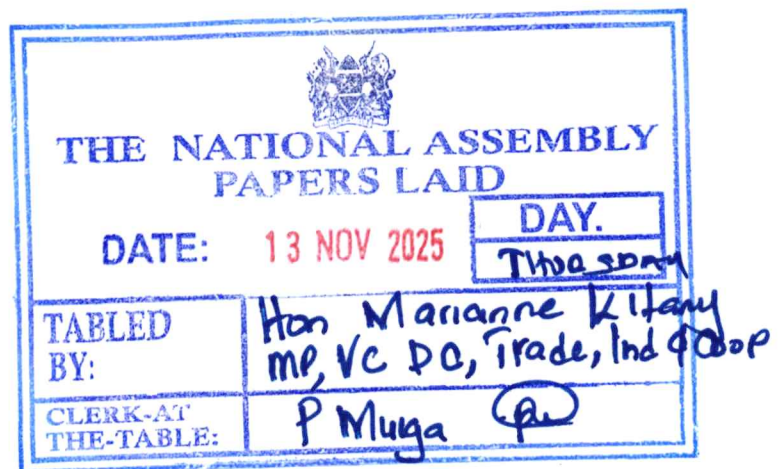 THE NATIONAL ASSEMBLY
PAPERS LAID
DATE: 13 NOV 2025
DAY.
Thursday
TABLED BY:
Hon Marianne Kitany
MP, VC DC, Trade, Ind & Coop
CLERK-AT THE-TABLE:
P Muiga